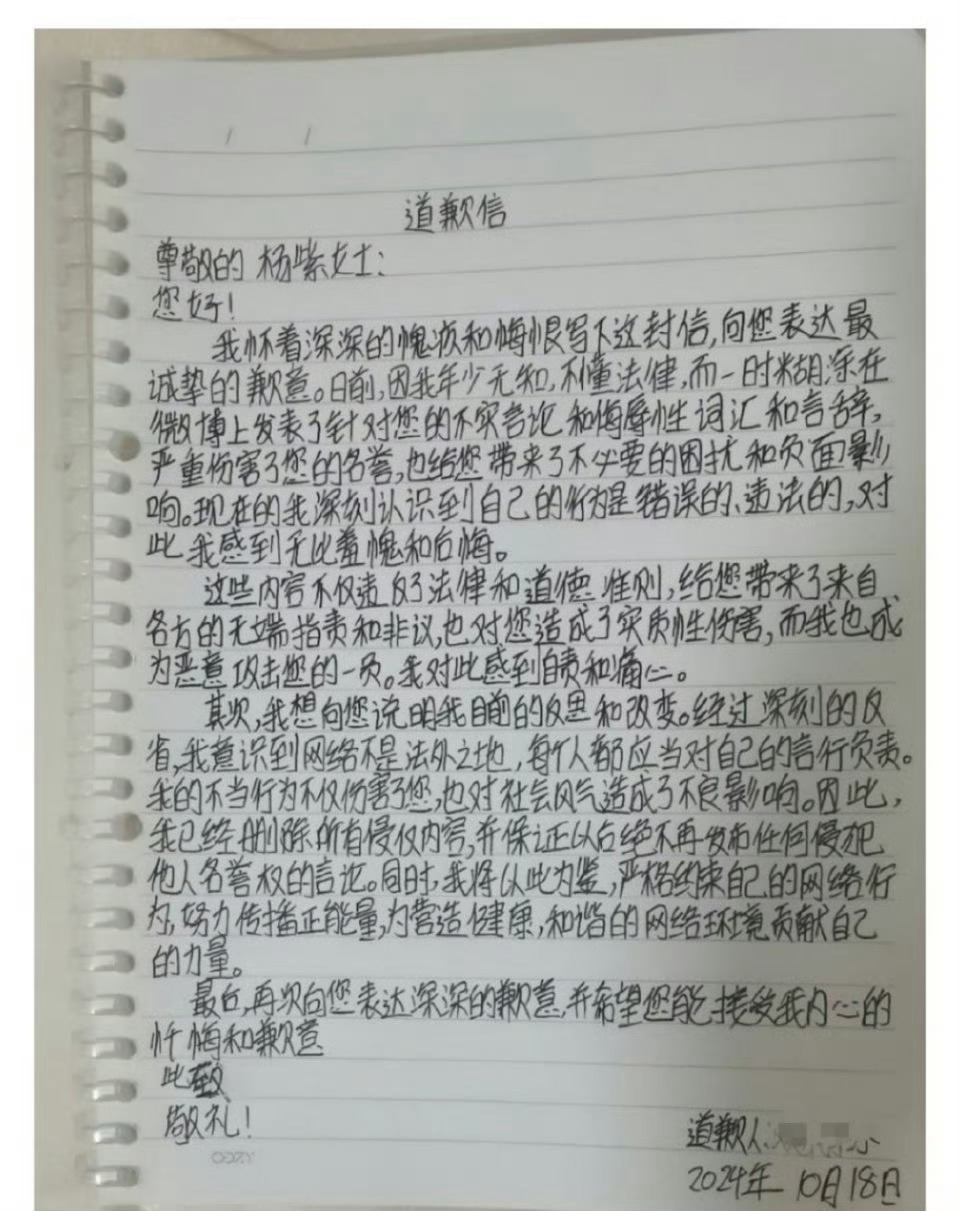 道歉信
尊敬的杨紫女士：
您好！
我怀着深深的愧疚和悔恨写下这封信，向您表达最
诚挚的歉意。日前，因我年少无知，不懂法律，而一时糊涂在
微博上发表了针对您的不实言论和侮辱性词汇和言辞，
严重伤害了您的名誉，也给您带来了不必要的困扰和负面影
响。现在的我深刻认识到自己的行为是错误的、违法的，对
此我感到无比羞愧和后悔。
这些内容不仅违反了法律和道德准则，给您带来了来自
各方的无端指责和非议，也对您造成了实质性伤害，而我也成
为恶意攻击您的一员。我对此感到自责和痛心。
其次，我想向您说明我目前的反思和改变。经过深刻的反
省，我意识到网络不是法外之地，每个人都应当对自己的言行负责。
我的不当行为不仅伤害了您，也对社会风气造成了不良影响。因此，
我已经删除所有侵权内容，并保证以后绝不再发布任何侵犯
他人名誉权的言论。同时，我将以此为鉴，严格约束自己的网络行
为，努力传播正能量，为营造健康，和谐的网络环境贡献自己
的力量。
最后，再次向您表达深深的歉意，并希望您能接受我内心的
忏悔和歉意
此致
敬礼！
道歉人：
2024年10月18日